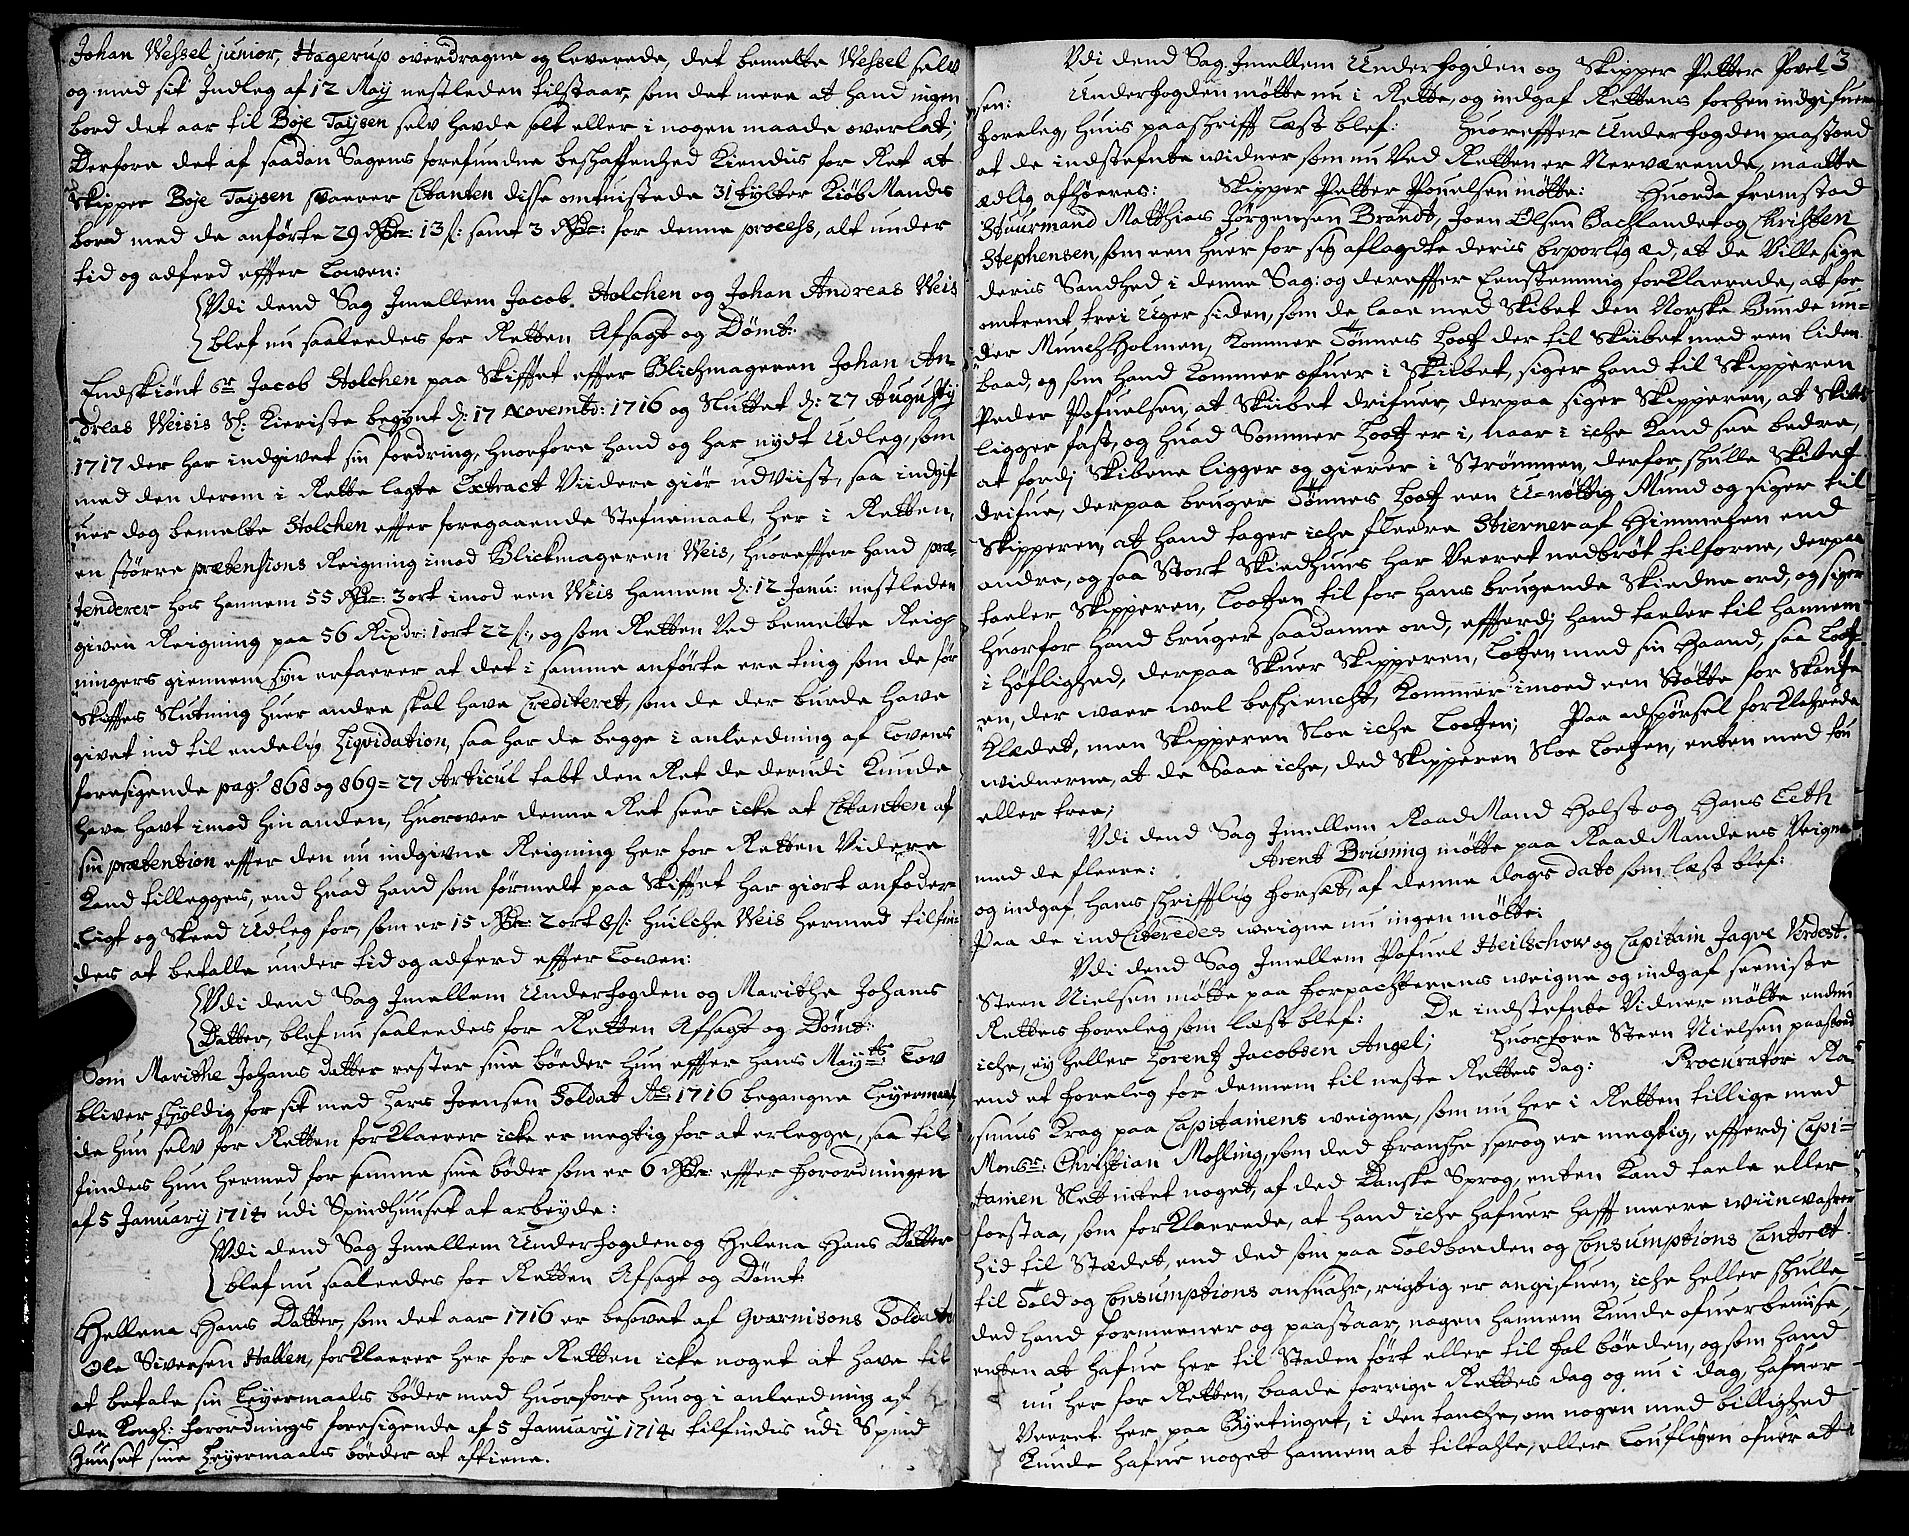 Johan Wessel junior, Hagerup overdragne og leverede, det bemelte Wessel selv
og med sit Indleg af 12 May nestleden tilstaar, som det mere at hand ingen
bord det aar til Boje Taysen selv havde solt eller i nogen maade overlat;
Derfore det af saadan Sagens forefundne beshaffenhed Kiendis for Ret at
Skipper Boje Taysen svarer Citanten disse omtvistede 31 tylter Kiöb Mands
bord med de anförte 29 Rdr: 13 s: samt 3 Rdr: for denne process, alt under
tid og adferd effter Lowen:
Vdi dend Sag Imellem Jacob Stolchen og Johan Andreas Weis
blef nu saaleedes for Retten Afsagt og Dömt:
Endskiönt Sr Jacob Stolchen paa Skifftet effter Blichmageren Johan An-
dreas Weisis Sl: Kieriste begynt d: 17 Novembr: 1716 og Sluttet d: 27 Augustij
1717 der har indgivet sin fordring, huorfore hand og har nydt Udleg, som
med den derom i Rette lagte Extract Viidere giör udviist, saa indgif
uer dog bemelte Stolchen effter foregaaende Stefnemaal, her i Retten,
en större prætensions Reigning imod Blickmageren Weis, huoreffter hand præ-
tenderer hos hannem 55 Rdr: 3 ort imod een Weis hannem d: 12 Janu: nestleden
given Reigning paa 56 Rixdr: 1 ort 22 s:, og som Retten Ved bemelte Reig-
ningers giennem syn erfaerer at det i samme anförte ere ting som de för
Skifftes Slutning huer andre skal have Crediteret, som de der burde have
givet ind til endelig Liqvidation, saa har de begge i anleedning af Lovens
foresigende pag: 868 og 869 = 27 Articul tabt den Ret de derudi Kunde
have havt imod hin anden, huorover denne Ret seer icke at Citanten af
sin prætention effter den nu indgivne Reigning her for Retten Videre
Kand tillegges, end huad hand som förmelt paa Skifftet har giort anfoder-
ligt og Skeed Udleg for, som er 15 Rdr: 2 ort 8 s: huilche Weis hermed tilfin-
des at betalle under tid og adferd effter Lowen:
Vdi dend Sag Imellem Underfogden og Marithe Johans
Datter, blef nu saaleedes for Retten Afsagt og Dömt:
Som Marithe Johans datter rester sine böder hun effter Hans Mayts Lov
bliver skyldig for sit med Lars Joensen Soldat Ao 1716 begangne Leyermaal,
de hun selv for Retten forklaerer icke er megtig for at erlegge, saa til
findes hun hermed for samme sine böder som er 6 Rdr: effter Forordningen
af 5 January 1714 udi Spindhuuset at arbeyde:
Vdi dend Sag Imellem Underfogden og Helena Hans Datter
blef nu saaleedes for Retten Afsagt og Dömt:
Hellena Hans Datter, som det aar 1716 er besovet af Gvarnisons Soldat
Ole Siversen Hallen, forklaerer her for Retten icke noget at have til
at betale sin Leyermaals böder med huorfore hun og i anleedning af
den Kongl: Forordnings foresigende af 5 January 1714 tilfindes udi Spind
Huuset sine Leyermaals böeder at aftiene.
3
Vdi dend Sag Imellem Underfogden og Skipper Petter Povel
sen: Underfogden mötte nu i Rette, og indgaf Rettens forhen indgifuen
foreleg, huis paaschrifft Læst blef: Huoreffter Underfogden paastoed
at de indstefnte widner som nu Ved Retten er Nerværende, maatte
ædlig afhöeres: Skipper Petter Pouelsen mötte: Huorda fremstod
Stuurmand Matthias Jörgensen Brandt, Joen Olsen Bachlandet og Christen
Stephensen, som een huer for sig aflagdte deris Corporlig æd, at de Ville sige
deris Sandhed i denne Sag: og dereffter Eenstemmig forklaerede, at for
omtrent trei Uger siden, som de laae med Skibet den Norske Bunde un-
der MunchHolmen, Kommer Tönnes Lootz der til Skibet med een liden
baad, og som hand Kommer ofuer i Skibet, siger hand til Skipperen
Peder Pofuelsen, at Skibet drifuer, derpaa siger Skipperen, at Skibet
ligger fast, og huad Sommer Lootz er i, naar i iche Kand see bedre,
at fordj Skibene ligger og gierer i Strömmen, derfor shulle Skibet
drifue, derpaa bruger Tönnes Lootz een U-nöttig Mund og siger til
Skipperen, at hand tager iche fleere Stierner af Himmelen end
andre, og saa Stort Skiedhuus har Veeret nedbröt tilforne, derpaa
taeler Skipperen, Lootzen til for hans brugende Skiedne ord, og siger
huorfor hand bruger saadanne ord, effterdj hand taeler til hannem
i Höflighed, derpaa Skuer Skipperen, Lotzen med sin Haand, saa Lootz-
en, der waer wel beshiencht, Kommer imoed een Stötte for Skantze
Klædet, men Skipperen Sloe iche Lootzen; Paa adspörsel forklahrede
widnerne, at de Saae iche, ded Skipperen Sloe Lootzen, enten med tou
eller tree;
Vdi dend Sag Imellem RaadMand Holst og Hans Leth
med de fleere: Arent Bruning mötte paa RaadMandens Veigne
og indgaf hans shrifftlig forsæt, af denne dags dato som læst blef:
Paa de indCiteredes weigne nu ingen mötte:
Vdi dend Sag Imellem Pofuel Heilschow og Capitain Jaqve Verdest:
Steen Nielsen mötte paa Forpachterens weigne og indgaf seeniste
Rettes foreleg som læst blef: De indstefnte Vidner mötte endnu
iche, ey heller Lorentz Jacobsen Angel; Huorfore Steen Nielsen paastoed
end et foreleg for dennem til neste Rettes dag: Procurator Ra-
smus Krog paa Capitainens weigne, som nu her i Retten tillige med
Monsr: Christian Mohling, som ded fransche sprog er megtig, effterdj Capi-
tainen Slet intet noget, af ded Danske Sprog, enten Kand taele eller
forstaa, som forklaerede, at hand iche hafuer hafft meere wiin vahrer
hid til Stædet, end ded som paa Toldboeden og Consumptions Contoret
til Told og Consumptions ansuahr, rigtig er angifuen, iche heller shulle
ded hand formeener og paastaar, nogen hannem Kunde ofuerbeviise,
enten at hafue her til Staden fört eller til fal böeden, og som hand
nu her for Retten, baade forrige Rettes dag og nu i dag, hafuer
Veeret her paa Byetinget, i den tanche, om nogen med billighed
Kunde hafue noget hannem at tiltahle, eller Loufligen ofuer at